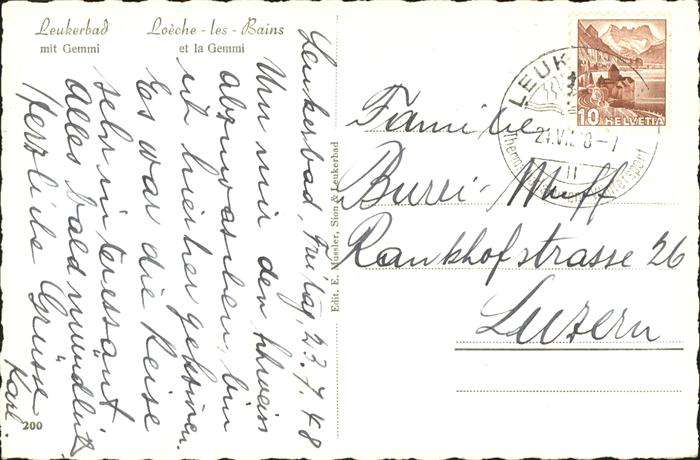 Leukerbad
mit Gemmi
Loèche-les-Bains
et la Gemmi
Leukerbad, Freitag, 23.7.48
Um mir den Schweiss
abzuwaschen, bin
ich hierher gekommen.
Es war die Reise
sehr interessant
Alles bald mündlich,
Herzliche Grüsse
Karl.
200
Edit. E. Mussler, Sion & Leukerbad
LEUK
II
10 HELVETIA
Familie
Burri-Muff
Rankhofstrasse 26
Luzern